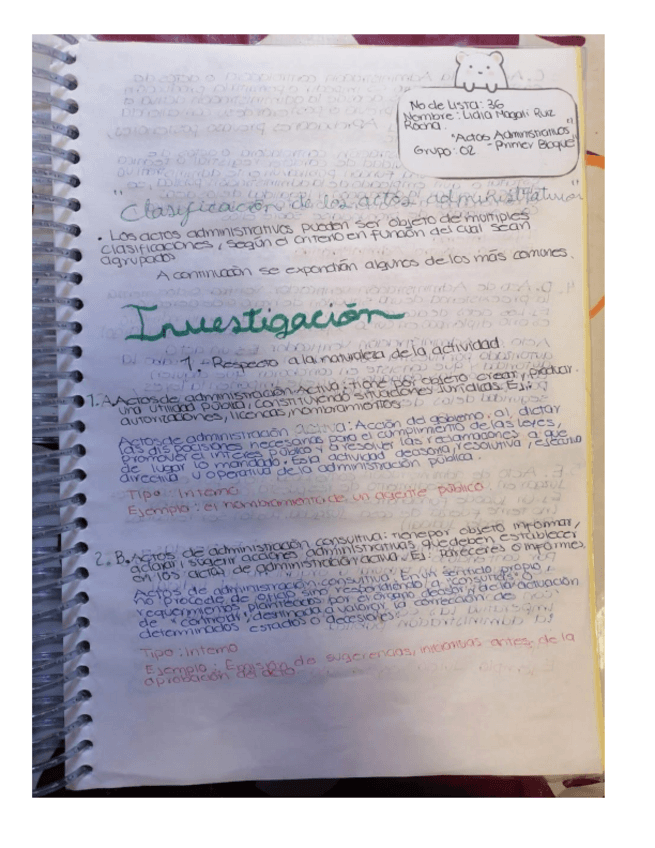 No de Lista: 36
Nombre: Lidia Magali Ruiz
Rocha.
"Actos Administrativos"
Grupo: 02 - Primer Bloque
"Clasificación de los actos administrativos"
• Los actos administrativos pueden ser objeto de múltiples
clasificaciones, según el criterio en función del cual sean
agrupados
A continuación se expondrán algunos de los más comunes.
Investigación
1.- Respecto a la naturaleza de la actividad.
1. A. Actos de administración Activa: tiene por objeto crear y producir
una utilidad pública, constituyendo situaciones Jurídicas. Ej:
autorizaciones, licencias, nombramientos
Actos de administración activa: Acción de gobierno, al dictar
las disposiciones necesarias para el cumplimiento de las leyes,
promover el interés público y a resolver las reclamaciones a que
de lugar lo mandado. Esta actividad decisoria, resolutiva, ejecutiva
directiva u operativa de la administración pública.
Tipo: Interno
Ejemplo: el nombramiento de un agente público
2. B. Actos de administración consultiva: tiene por objeto informar,
aclarar, sugerir acciones administrativas que deben establecer
en los actos de administración activa. Ej: Pareceres o informes.
Actos de administración consultiva: En un sentido propio,
no procede de oficio sino respondiendo a consultas o
requerimientos planteados por el órgano decisor y de la actuación
de "control", destinada a valorar la corrección de
determinados estados o decisiones
Tipo: Interno
Ejemplo: Emisión de sugerencias, iniciativas antes de la
aprobación del